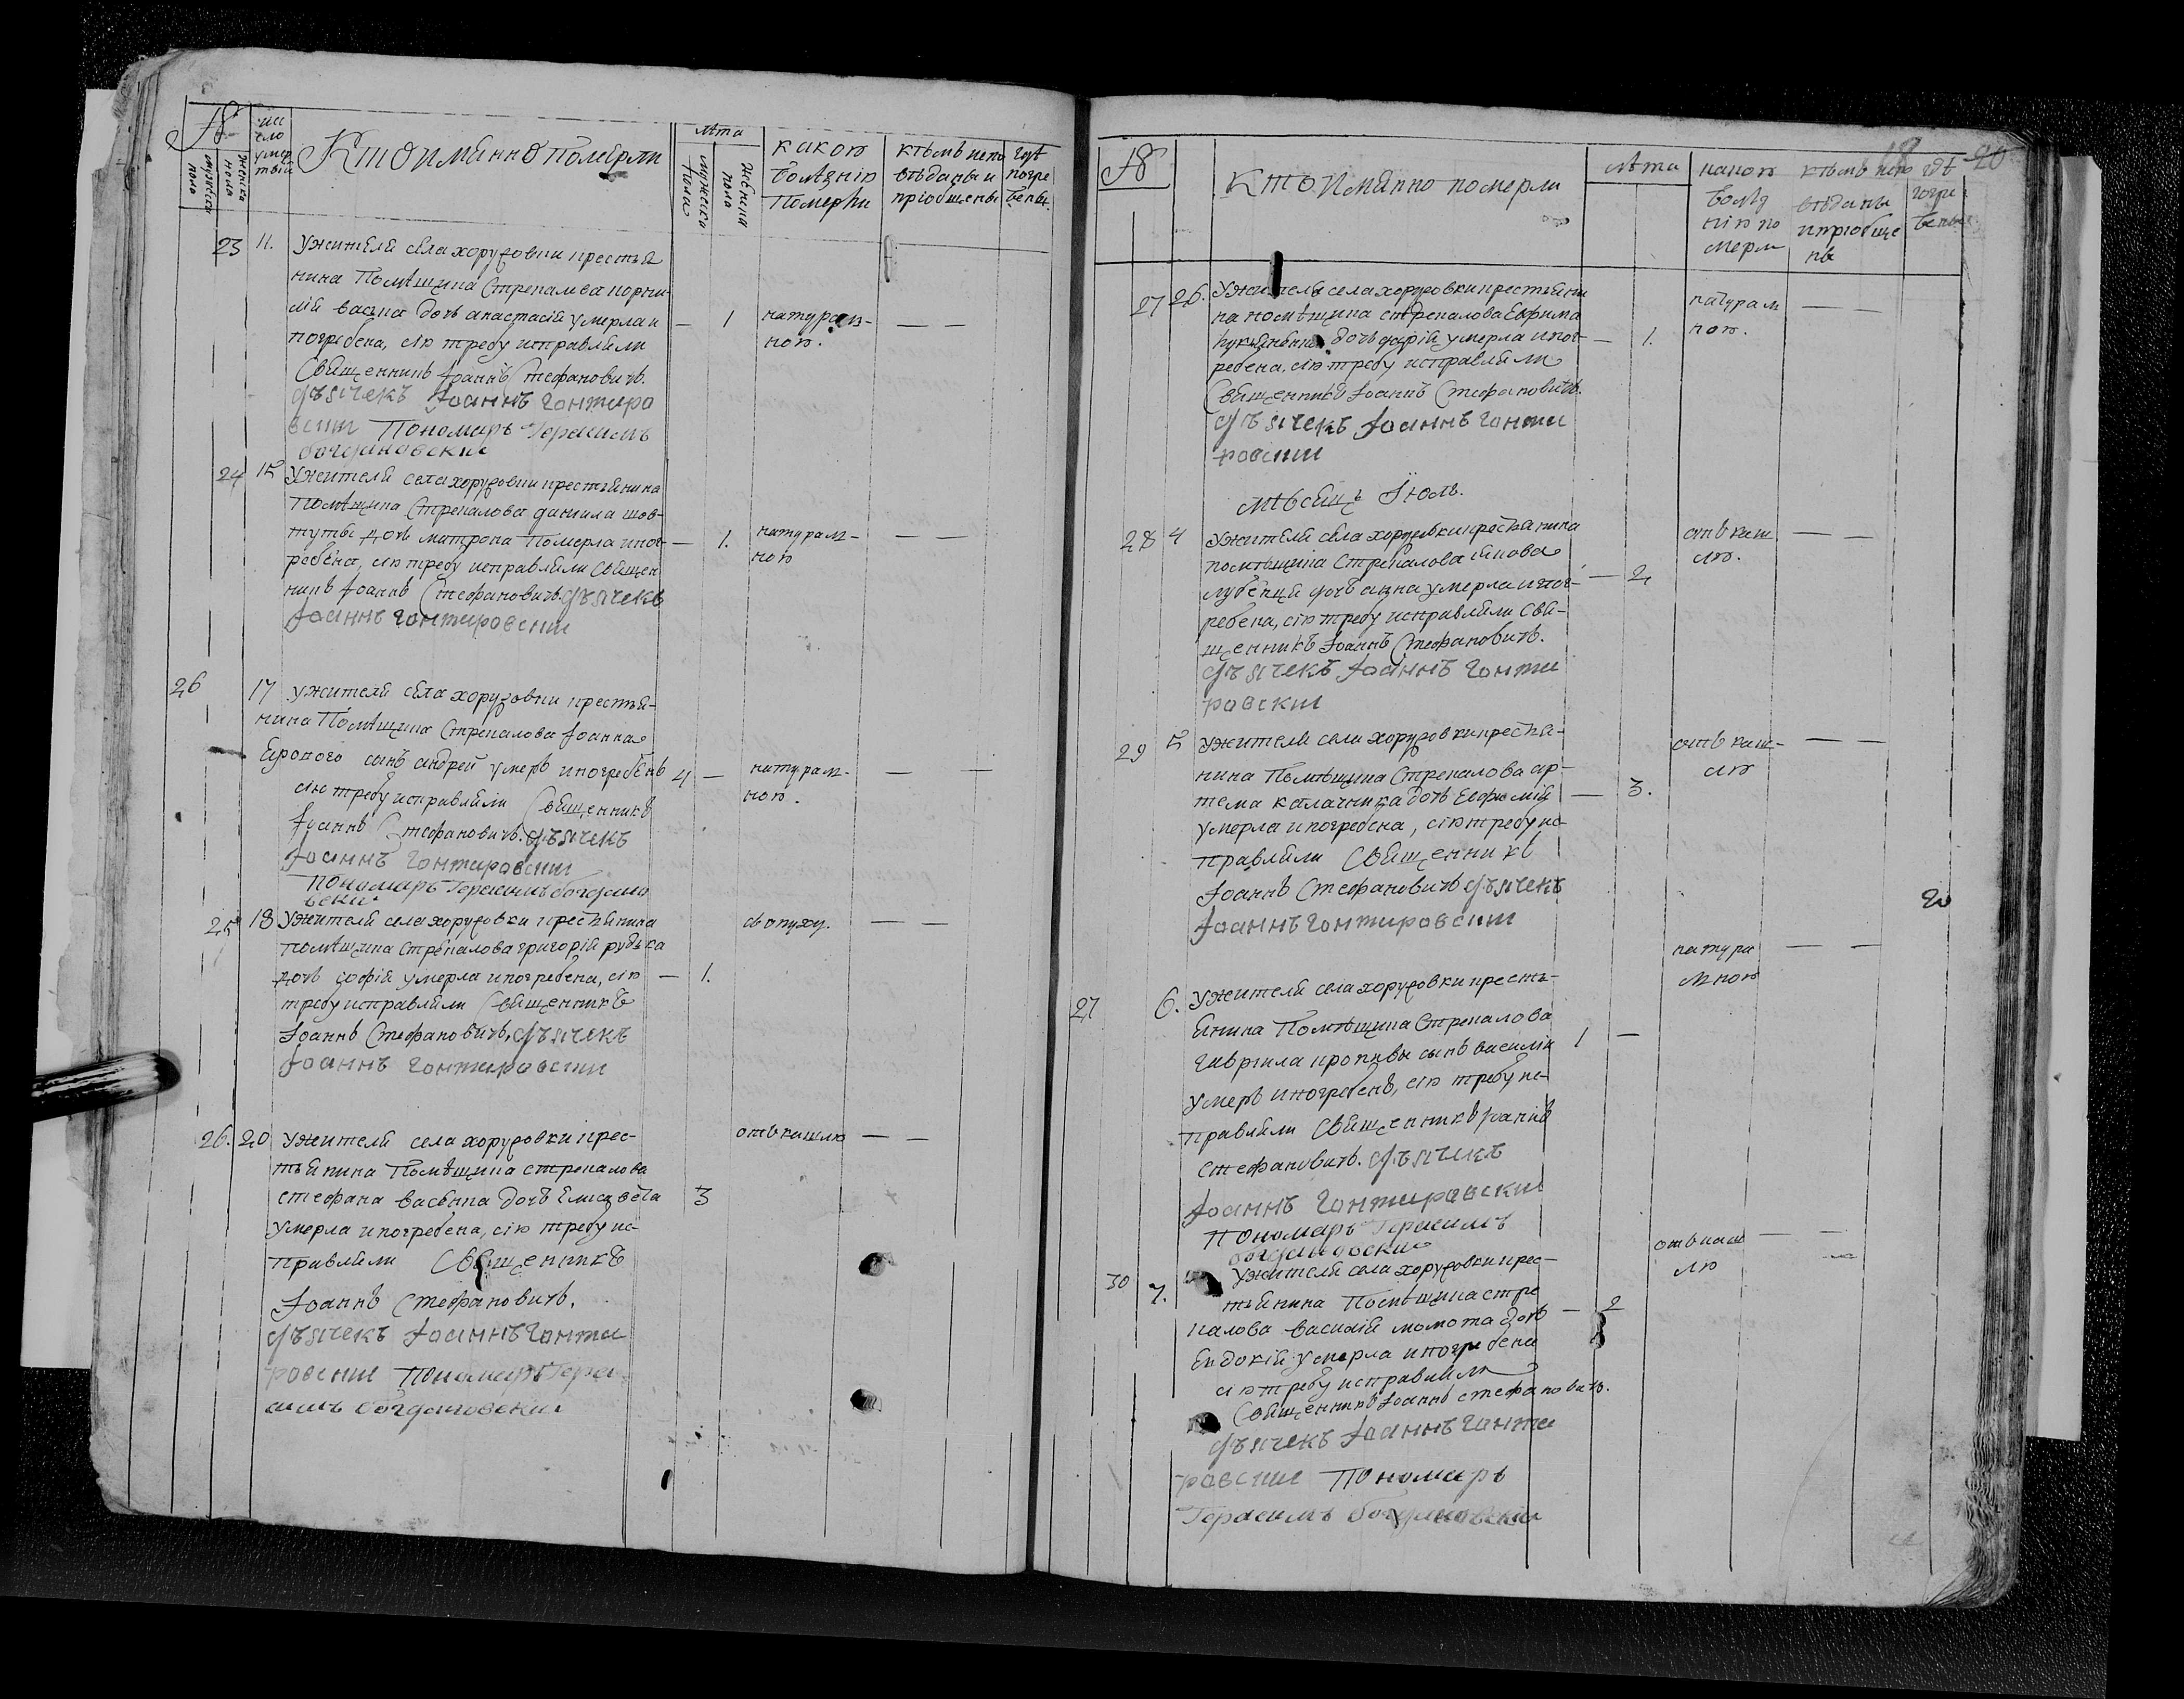 №
чи
сло
умер
твій
мужеска
пола
женска
пола
Кто имянно померли
лѣта
мужеска
пола
женска
пола
какою
болѣзнію
померли
кѣмъ испо
вѣданы и
пріобщены
гдѣ
погре
бены.
23 11. У жителя села хоружовки крестья
нина Помѣщика Стрекалова корни-
лія васька дочь анастасія умерла и — 1 натурал- — —
погребена, сію требу исправляли ною.
Священникъ Іоаннъ Стефановичъ.
дъячекъ Іоаннъ Гонтиро
вскии Пономарь Герасимъ
богдановскии
24 15 У жителя села хоружовки крестьянина
Помѣщика Стрекалова данила шов-
туты дочь матрона померла и пог- — 1. натурал- — —
ребена, сію требу исправляли Священ ною
никъ Іоаннъ Стефановичъ. дъячекъ
Іоаннъ Гонтировскии
26 17 У жителя села хоружовки крестья-
нина Помѣщика Стрекалова Іоанна
сынъ андрей умеръ и погребенъ 4 — натурал- — —
сію требу исправляли Священникъ ною.
Іоаннъ Стефановичъ. дъячекъ
Іоаннъ Гонтировскии
Пономарь Герасимъ богдано
вскии
25 18 У жителя села хоружовки крестьянина съ опуху. — —
помѣщика Стрекалова григорія рудька
дочь софія умерла и погребена, сію — 1.
требу исправляли Священникъ
Іоаннъ Стефановичъ, дъячекъ
Іоаннъ Гонтировскии
26. 20 У жителя села хоружовки крес- отъ кашлю — —
тьянина Помѣщика стрекалова
стефана васька дочь Елисавета 3
умерла и погребена, сію требу ис-
правляли Священникъ
Іоаннъ Стефановичъ.
дъячекъ Іоаннъ Гонти
ровскии Пономарь Гера
симъ богдановскии
20
№
Кто имянно померли
лѣта
какою
болѣз
нію по
мерли
кѣмъ испо
вѣданы
и пріобще
ны
гдѣ
погре
бены
27 26. У жителя села хоружовки крестьяни натурал — —
на помѣщика стрекалова Ефрима ною.
дочь дарія умерла и пог- — 1.
ребена, сію требу исправляли
Священникъ Іоаннъ Стефановичъ.
дъячекъ Іоаннъ Гонти
ровскии
мѣсяцъ Іюль.
28 4 У жителя села хоружовки крестьянина отъ каш — —
помѣщика Стрекалова лю.
дочь анна умерла и пог- — 2
ребена, сію требу исправляли Свя-
щенникъ Іоаннъ Стефановичъ.
дъячекъ Іоаннъ Гонти
ровскии
29 5 У жителя села хоружовки крестья- отъ каш- — —
нина Помѣщика Стрекалова ар- лю
тема калачника дочь Евфимія — 3.
умерла и погребена, сію требу ис-
правляли Священникъ
Іоаннъ Стефановичъ дъячекъ
Іоаннъ Гонтировскии
20
натура — —
лною
27 6. У жителя села хоружовки кресть-
янина Помѣщика Стрекалова
гаврила кропивы сынъ василій 1 —
умеръ и погребенъ, сію требу ис-
правляли Священникъ Іоаннъ
Стефановичъ. дъячекъ
Іоаннъ Гонтировскии
Пономарь Герасимъ
богдановскии
30 7. У жителя села хоружовки крес- отъ каш — —
тьянина Помѣщика стре лю
калова василія момота дочь — 2
Евдокія умерла и погребена
сію требу исправляли
Священникъ Іоаннъ стефановичъ.
дъячекъ Іоаннъ Гонти
ровскии Пономарь
Герасимъ богдановскии